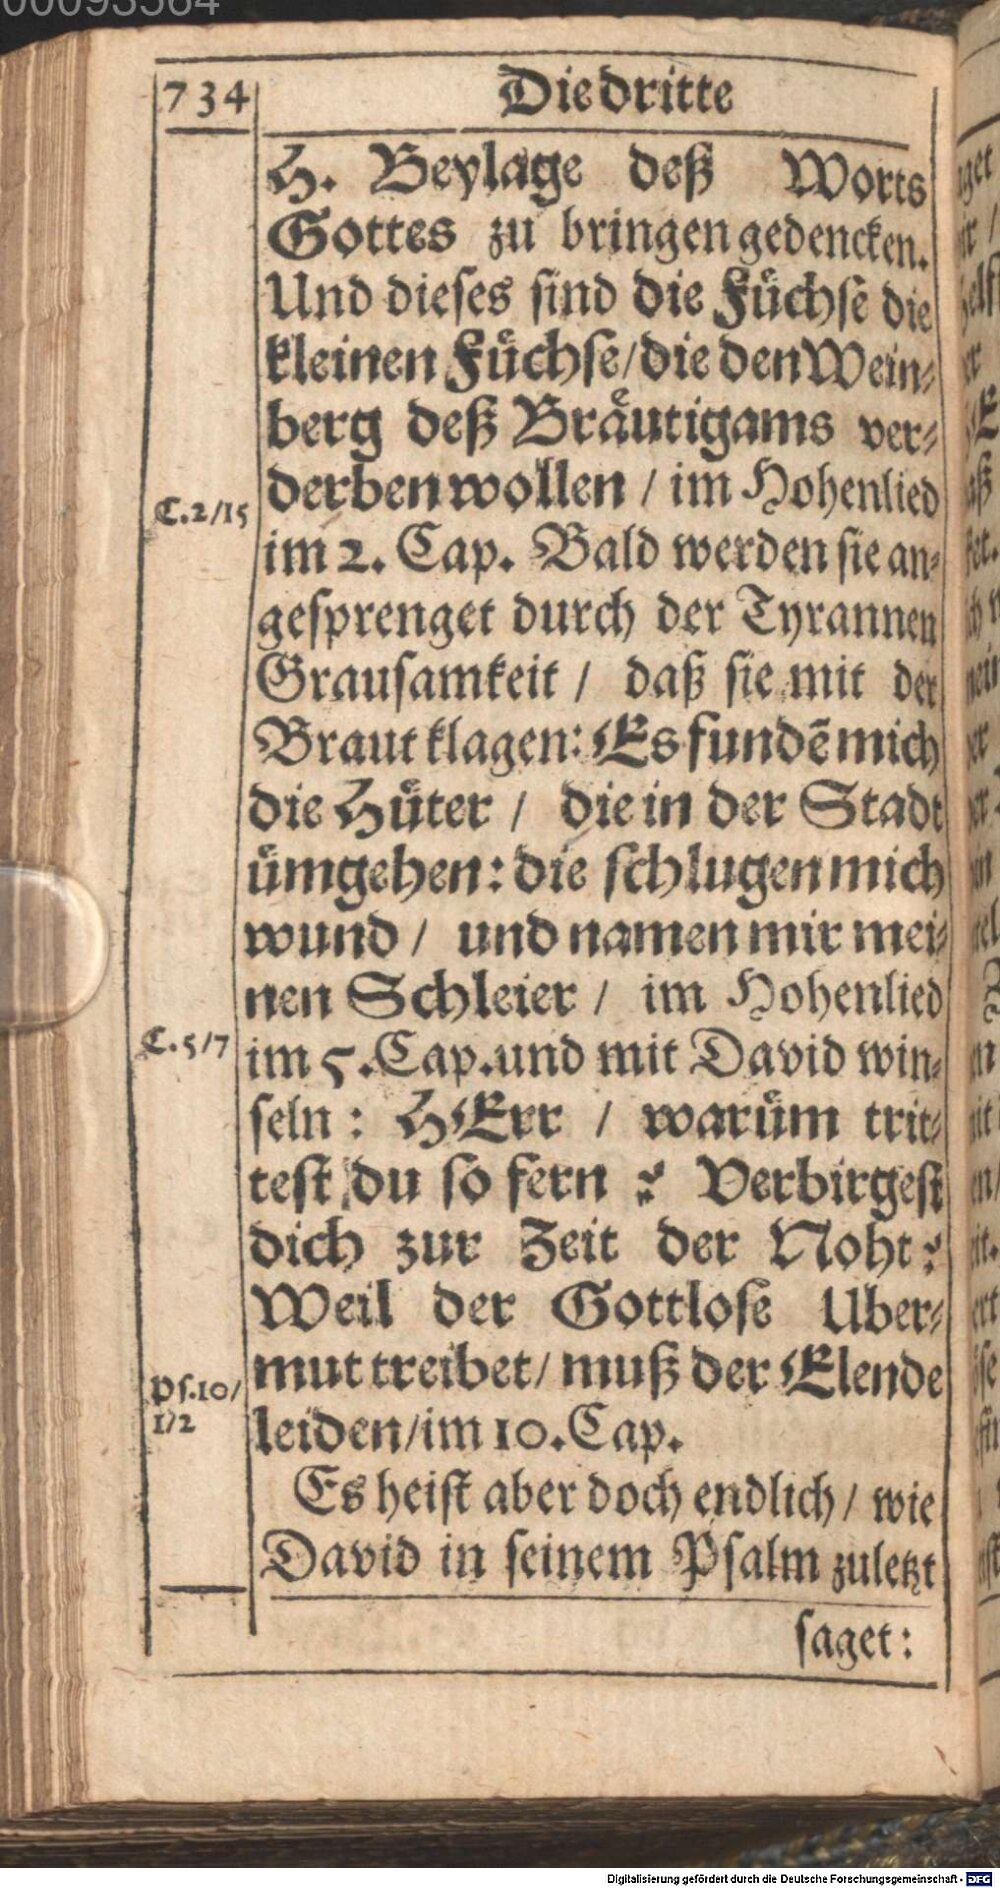 734
Die dritte
H. Beylage deß Worts
Gottes zu bringen gedencken.
Und dieses sind die Füchse die
kleinen Füchse/die den Wein⸗
berg deß Bräutigams ver⸗
derben wollen / im Hohenlied
C.2/15
im 2. Cap. Bald werden sie an⸗
gesprenget durch der Tyrannen
Grausamkeit / daß sie mit der
Braut klagen: Es fundẽ mich
die Hüter / die in der Stadt
ümgehen: die schlugen mich
wund / und namen mir mei⸗
nen Schleier / im Hohenlied
C.5/7
im 5. Cap. und mit David win⸗
seln : HErr / warüm trit⸗
test du so fern ? Verbirgest
dich zur Zeit der Noht?
Weil der Gottlose Uber⸗
mut treibet/ muß der Elende
Ps.10/
1/2
leiden/im 10. Cap.
Es heist aber doch endlich / wie
David in seinem Psalm zuletzt
saget:
Digitalisierung gefördert durch die Deutsche Forschungsgemeinschaft - DFG